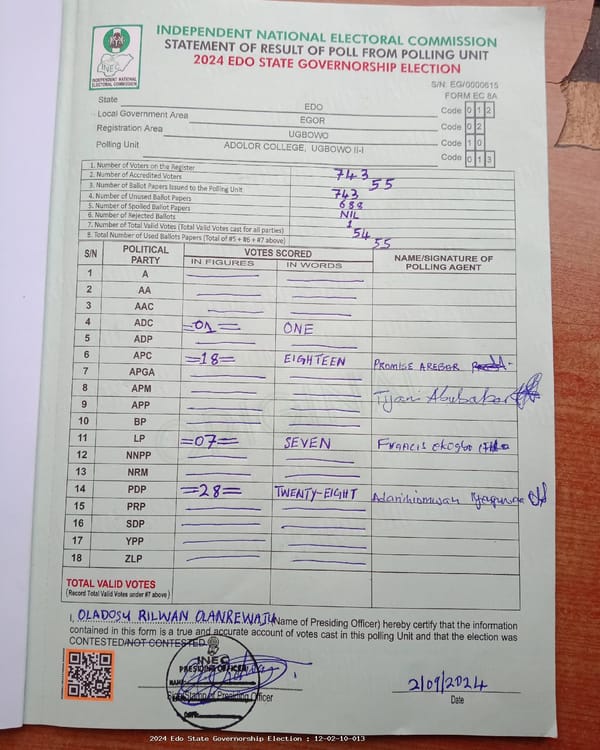 INDEPENDENT NATIONAL ELECTORAL COMMISSION
STATEMENT OF RESULT OF POLL FROM POLLING UNIT
2024 EDO STATE GOVERNORSHIP ELECTION
INEC
INDEPENDENT NATIONAL ELECTORAL COMMISSION
S/N: EG/0000615
FORM EC 8A
State EDO Code 0 1 2
Local Government Area EGOR Code 0 2
Registration Area UGBOWO Code 1 0
Polling Unit ADOLOR COLLEGE, UGBOWO II-I Code 0 1 3
1. Number of Voters on the Register 743
2. Number of Accredited Voters 55
3. Number of Ballot Papers Issued to the Polling Unit 743
4. Number of Unused Ballot Papers 688
5. Number of Spoiled Ballot Papers NIL
6. Number of Rejected Ballots 1
7. Number of Total Valid Votes (Total Valid Votes cast for all parties) 54
8. Total Number of Used Ballots Papers (Total of #5 + #6 + #7 above) 55
S/N POLITICAL PARTY VOTES SCORED NAME/SIGNATURE OF POLLING AGENT
IN FIGURES IN WORDS
1 A
2 AA
3 AAC
4 ADC =01= ONE
5 ADP
6 APC =18= EIGHTEEN PROMISE AREBOR
7 APGA
8 APM Tijani Abubakar
9 APP
10 BP
11 LP =07= SEVEN Francis
12 NNPP
13 NRM
14 PDP =28= TWENTY-EIGHT
15 PRP
16 SDP
17 YPP
18 ZLP
TOTAL VALID VOTES
(Record Total Valid Votes under #7 above)
I, OLADOSU RILWAN OLANREWAJU (Name of Presiding Officer) hereby certify that the information
contained in this form is a true and accurate account of votes cast in this polling Unit and that the election was
CONTESTED/NOT CONTESTED
INEC
PRESIDING OFFICER
NAME
Presiding Officer
DATE
2/09/2024
Date
2024 Edo State Governorship Election : 12-02-10-013